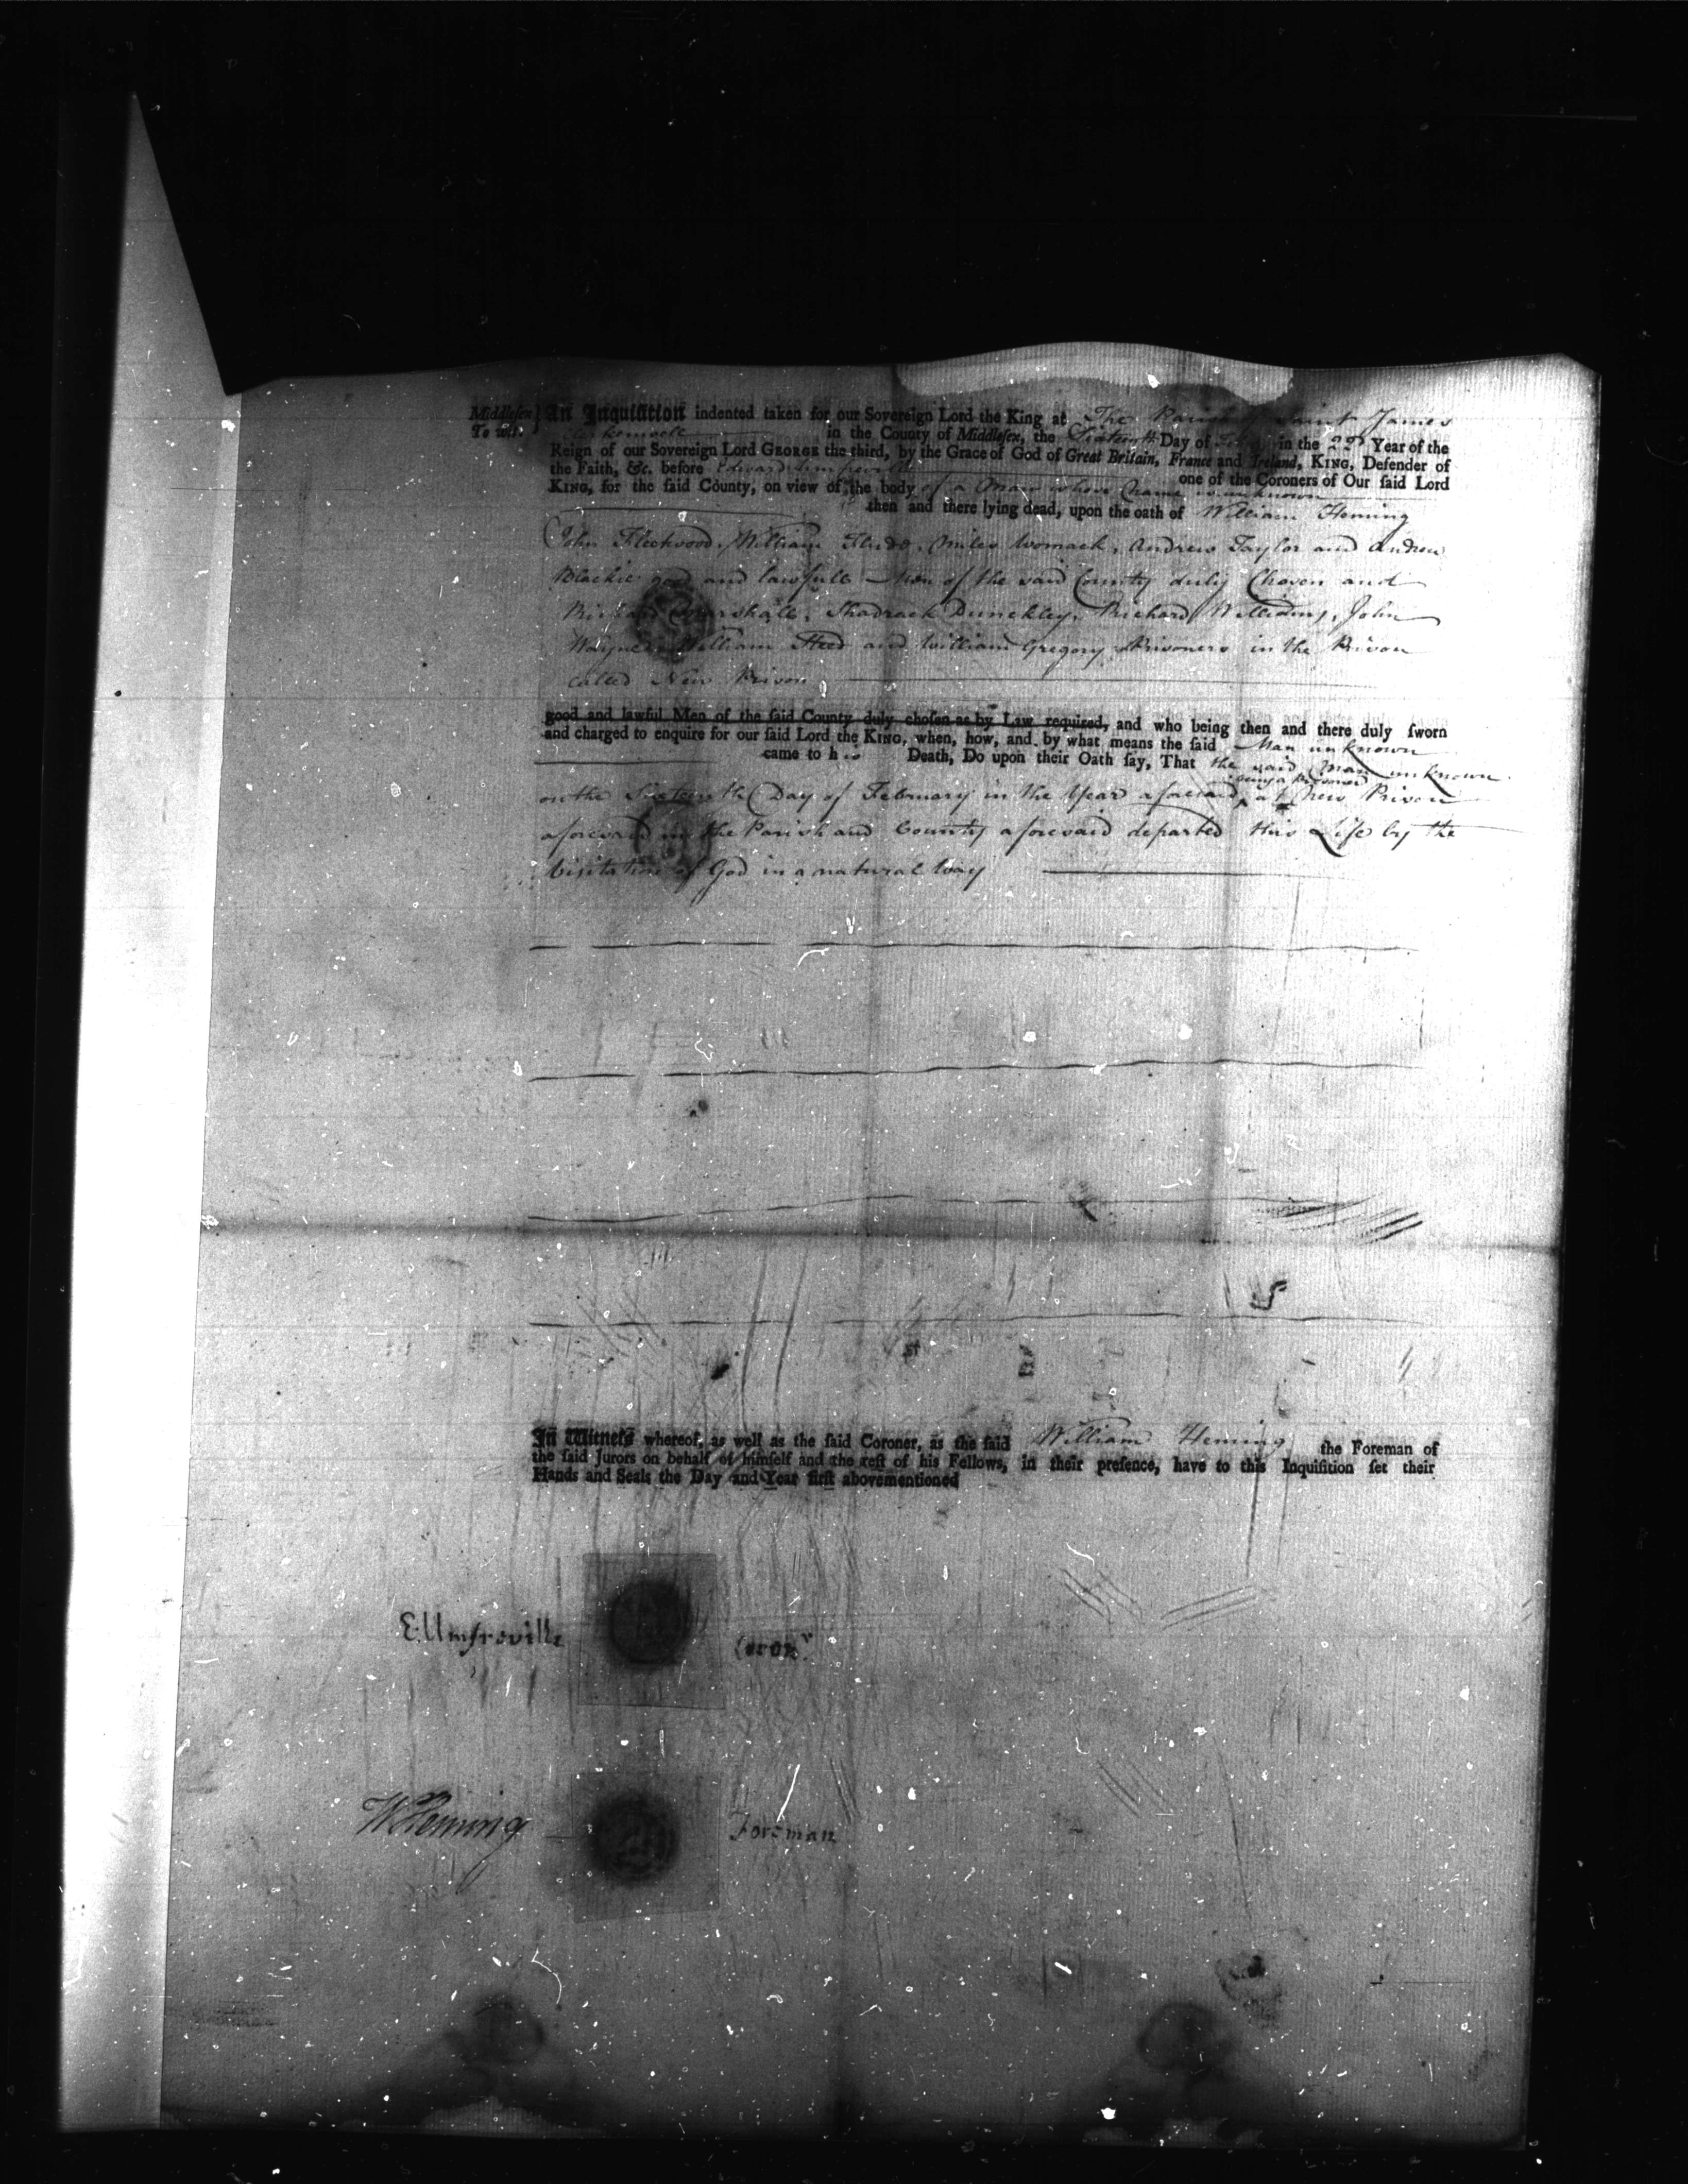 Middlesex } An Inquisition indented taken for our Sovereign Lord the King at The Parish of Saint James
To wit. Clerkenwell in the County of Middlesex, the Sixteenth Day of in the 22d Year of the
Reign of our Sovereign Lord GEORGE the third, by the Grace of God of Great Britain, France and Ireland, KING, Defender of
the Faith, &c. before Edward Umfreville one of the Coroners of Our said Lord
KING, for the said County, on view of the body of a Man whose Name is unknown
then and there lying dead, upon the oath of William Fleming
John Fleetwood, William Fludd, Miles Womack, Andrew Taylor and Andrew
Blackie good and lawfull Men of the said County duly Chosen and
Richard Marshall, Shadrack Dunckley, Richard Williams, John
Wayne, William Steed and William Gregory Prisoners in the Prison
called New Prison
good and lawful Men of the said County duly chosen as by Law required, and who being then and there duly sworn
and charged to enquire for our said Lord the KING, when, how, and by what means the said Man unknown
came to his Death, Do upon their Oath say, That the said Man unknown
being a Prisoner
on the Sixteenth Day of February in the Year aforesaid, at New Prison
aforesaid in the Parish and County aforesaid departed this Life by the
Visitation of God in a natural way
In Witness whereof, as well as the said Coroner, as the said William Fleming the Foreman of
the said Jurors on behalf of himself and the rest of his Fellows, in their presence, have to this Inquisition set their
Hands and Seals the Day and Year first abovementioned
E: Umfreville Coronr.
W Fleming Foreman